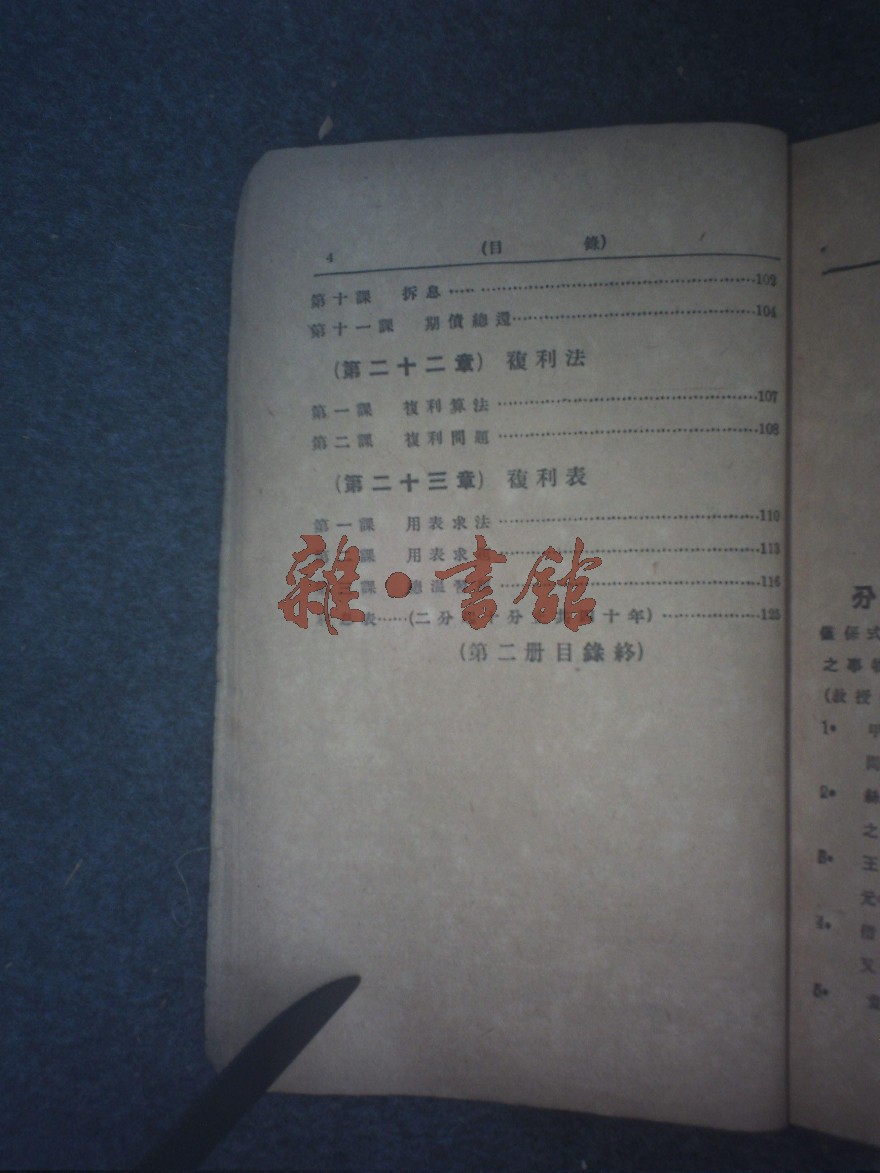 4 (目 錄)
第十課 拆息…… 102
第十一課 期債總還…… 104
(第二十二章) 複利法
第一課 複利算法…… 107
第二課 複利問題…… 108
(第二十三章) 複利表
第一課 用表求法…… 110
課 用表求…… 113
課 總溫習…… 116
表……(二分 十分 十年)…… 125
(第二册目錄終)
雜·書館
分
僅係式
之事
(教授
1.
2. 絲
之
3. 王
元
4.
又
5.